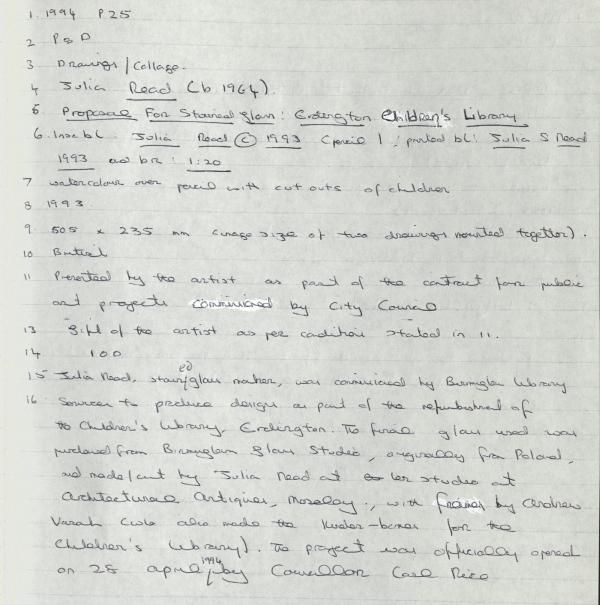 1. 1994 P25
2 P&D
3 Drawings/Collage.
4 Julia Read (b. 1964).
5 Proposal For Stained glass: Erdington Children's Library
6. Insc bl Julia Read © 1993 (pencil); printed bl: Julia S Read
1993 and br: 1:20
7 watercolour over pencil with cut outs of children
8 1993
9 505 x 235 mm (image size of two drawings mounted together).
10 British
11 Presented by the artist as part of the contract for public
art projects commissioned by City Council
13 Gift of the artist as per condition stated in 11.
14 100
15 Julia Read, stained glass maker, was commissioned by Birmingham Library
16 Services to produce designs as part of the refurbishment of
the Children's Library, Erdington. The final glass used was
purchased from Birmingham Glass Studio, originally from Poland,
and made/cut by Julia Read at her studio at
Architectural Antiques, Moseley, with frames by Andrew
Varah (who also made the kinder-boxes for the
Children's Library). The project was officially opened
on 28 April 1994 by Councillor Carl Rice